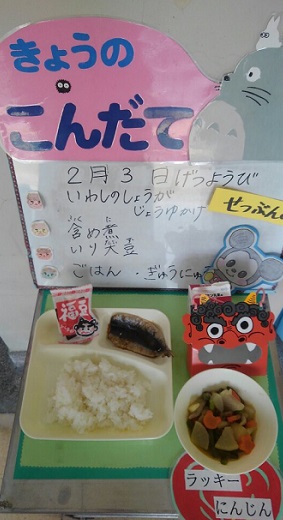 きょうの
こんだて
2月3日げつようび
いわしのしょうが
じょうゆかけ
ふくに
含め煮
いり大豆
ごはん ・ぎゅうにゅう
せつぶん
福豆
ラッキー
にんじん